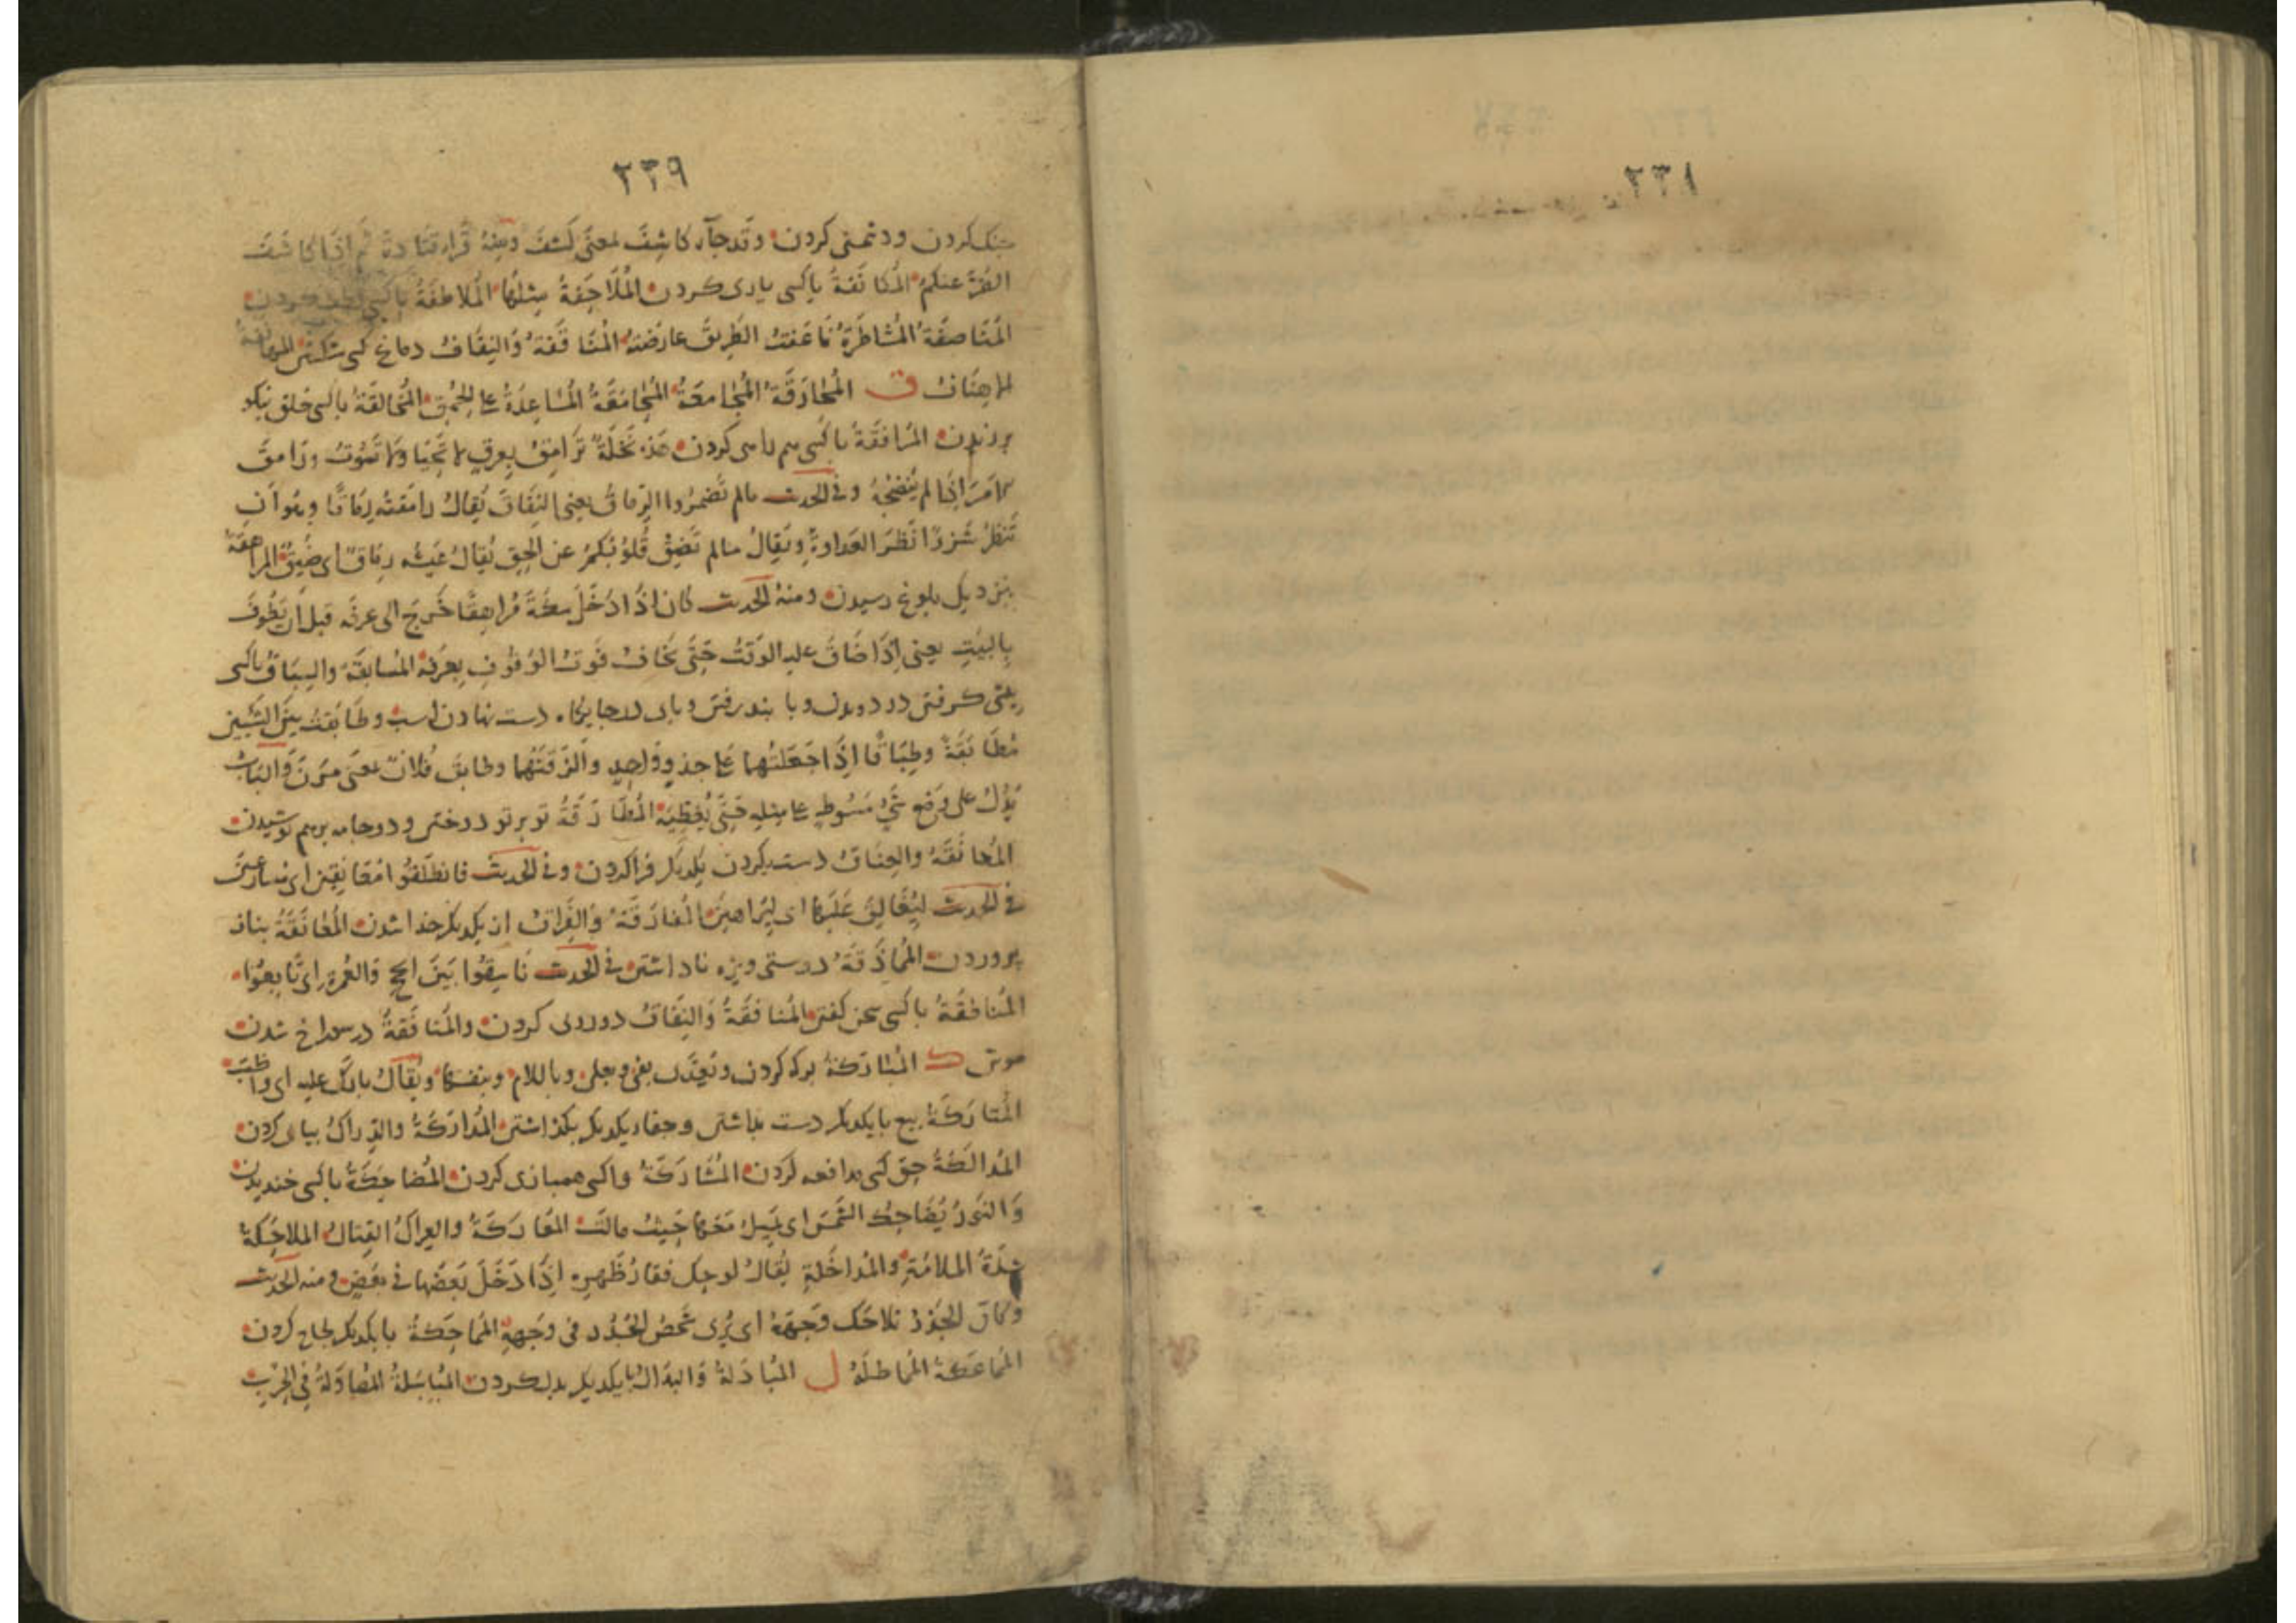 ٢٣٨
٢٣٩
جنك كردن ودشمنى كردن وقد جآء كاشِفَ بمعنَى كَشفَ ومنهُ قُراءة قتادةَ ثم اِذَا كاشَفَ
الضُرَّ عنكم المُكانَفَةُ باكسى يارى كردن المُلَاحَفَةُ مِثلهَا المُلاطفَةُ باكسى لطف كردن
المُنَاصفَة المُشاطَرَةُ نَاعَفتُ الطَريقَ عارَضتهُ المُنَاقَفَةُ وَالنِقَافُ دماغ كسى شكستن المهانفة
الاِهنَافُ ق المُحَارَقَة المُجامعَةُ المُحَامَقَةُ المُسَاعِدَةُ على الحُمق المُخَالقَةُ باكسى خلق نيكو
ورزيدن المُرَافقَةُ باكسى همراهى كردن هَذِه نَخلَةٌ تُرَامِقُ بِعِرقٍ لا تَحيَا ولَا تَمُوتُ ورَامقَ
الامرَ اِذَا لم يُنضِجهُ وفى الحديث مالم تُضمِرُوا الرِمَاقَ يعنى النِفَاقَ يُقالُ رامَقتُه رِمَاقًا وهُوَ اَن
تَنظُر شَزرًا نَظَرَ العَداوَةِ ويُقالُ مالم تَضِق قُلُوبُكُم عن الحق يُقَالُ عَيشُه رِمَاقٌ اى ضَيِّقٌ المراهقَة
بنزديك بلوغ رسيدن ومنهُ الحديث كان اذَا دَخَلَ مكَّةَ مُراهِقًا خَرجَ الى عرفَه قبل ان يَطُوفَ
بِالبَيتِ يعنى اِذَا ضَاقَ عليه الوَقتُ حَتَّى يَخافُ فَوتَ الوُقُوفِ بِعَرفَه المُسابقَة والسِبَاقُ باكسى
پيشى كرفتن در دويدن وبا بند رفتن وپاى در جايكاه دست نهادن اسب وطَابَقتُ بينَ الشَيئَين
مُطَابَقَةً وطِبَاقًا اِذَا جَعَلتَهما على حَذوٍ وَاحِدٍ والزَقتَهُما وطابقَ فُلانٌ بمعنى مَرنَ وَالبَابُ
يَدُلُّ على وضع شَئٍ مَبسُوطٍ على مِثلِهِ حَتَّى يُغطِيَهُ المُطَارَقَةُ تو بر تو دوختن ودو جامه برهم پوشيدن
المُعانَقَةُ والعِنَاقُ دست بكردن يكديكر فراكردن وفى الحديث فانطَلَقُوا مُعَانِقِين اى مُسارعين
فى الحديث لِيُغَالِقَ عَلَيهَا اى لِيُرَاهِنَ المُفارَقَةُ وَالفِراقُ از يكديكر جدا شدن المُفانَقَةُ بناز
پروردن المُماذَقَةُ دوستى ويژه ناداشتن فى الحديث نَاسِقُوا بَينَ الحج وَالعُمرة اى تَابِعُوا
المُنَاطَقَةُ باكسى سخن كفتن المُنَافَقَةُ وَالنِفَاقُ دورويى كردن والمُنَافَقَةُ در سوراخ شدن
موش ك المُبَارَكَةُ بركه كردن وتَعدَّى بفى وبعلى وباللام وبنفسهَا ويُقَالُ بارَكَ عليه اى واظَبَ
المُتَارَكَةُ بيع با يكديكر دست بداشتن وجفاء يكديكر بكذاشتن المُدَارَكَةُ والدِراكُ بياپى كردن
المُدالَكَةُ حقّ كسى مدافعه كردن المُشَارَكَةُ واكسى همبازى كردن المُضاحِكَةُ باكسى خنديدن
وَالنَورُ يُضَاحِكُ الشَمسَ اى يَمِيلُ مَعَهَا حَيثُ مالَت المعَارَكَةُ والعِراكُ القِتَالُ المُلاحَكَةُ
شِدَّةُ الملائمَةِ والمُدَاخَلَةِ يُقَالُ لوحِكَ فقارُ ظَهرِه اِذَا دَخَلَ بَعضُها فى بَعضٍ ومنه الحديث
وكانَ الجُدُرُ تُلاحِكُ وَجهَهُ اى يُرَى شَخصُ الجُدُر فى وَجهِه المُماحَكَةُ با يكديكر لجاج كردن
المُماعَكَةُ المُماطَلَةُ ل المُبَادَلَةُ وَالبِدَالُ با يكديكر بدل كردن المُبَاسَلَةُ المُصَاوَلَةُ فى الحَربِ